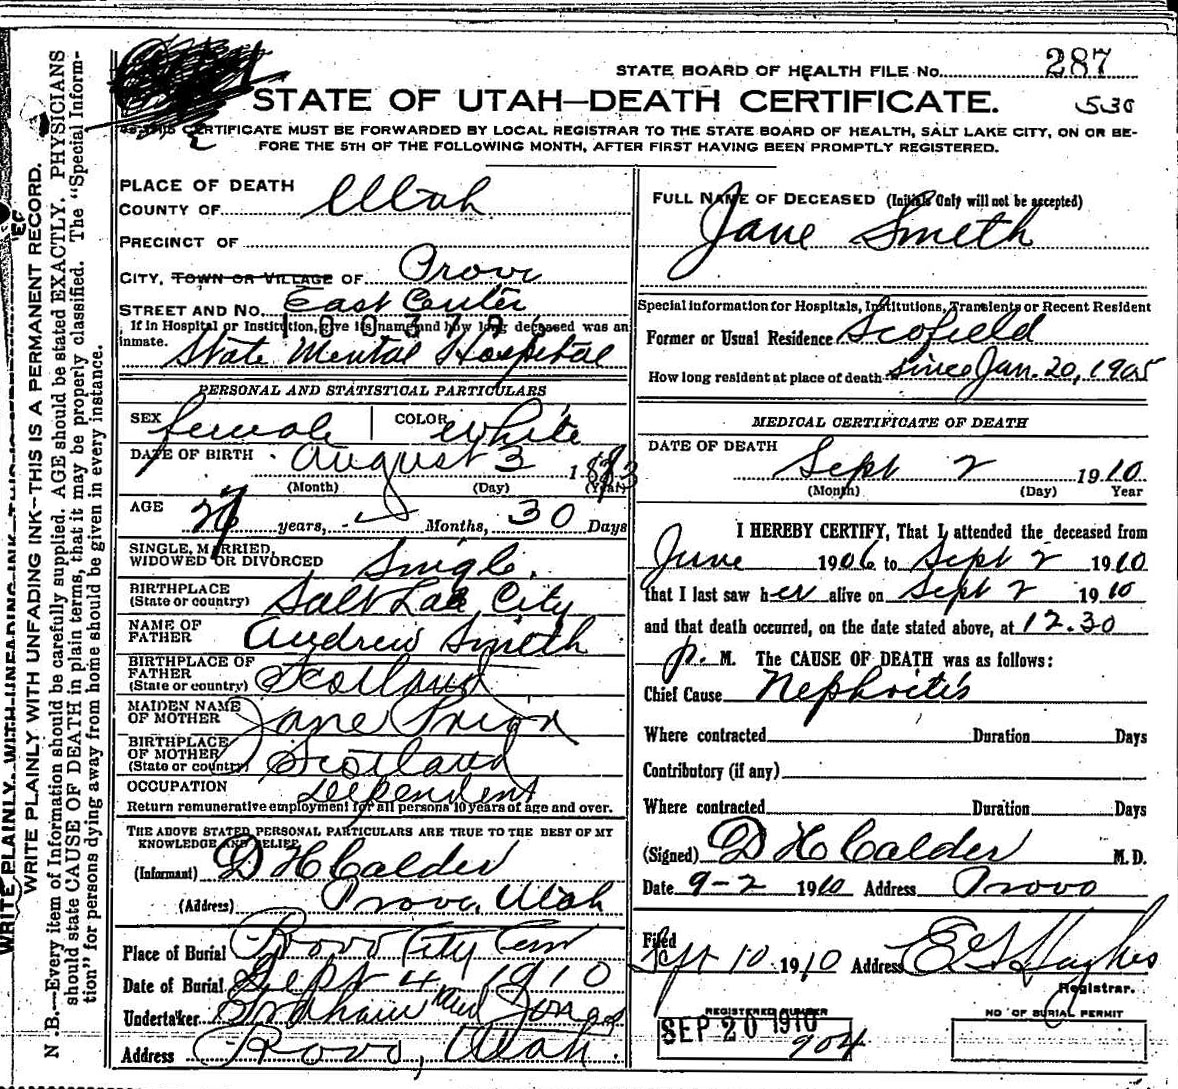 STATE BOARD OF HEALTH FILE No. 287
STATE OF UTAH—DEATH CERTIFICATE.
530
CERTIFICATE MUST BE FORWARDED BY LOCAL REGISTRAR TO THE STATE BOARD OF HEALTH, SALT LAKE CITY, ON OR BE-
FORE THE 5TH OF THE FOLLOWING MONTH, AFTER FIRST HAVING BEEN PROMPTLY REGISTERED.
WRITE PLAINLY WITH UNFADING INK—THIS IS A PERMANENT RECORD.
N. B.—Every item of Information should be carefully supplied. AGE should be stated EXACTLY. PHYSICIANS
should state CAUSE OF DEATH in plain terms, that it may be properly classified. The "Special Inform-
tion" for persons dying away from home should be given in every instance.
PLACE OF DEATH
COUNTY OF Utah
PRECINCT OF
CITY, TOWN OR VILLAGE OF Provo
STREET AND No. East Center
If in Hospital or Institution, give its name and how long deceased was an
inmate. State Mental Hospital
100379
PERSONAL AND STATISTICAL PARTICULARS
SEX female COLOR white
DATE OF BIRTH August 3 1883
(Month) (Day) (Year)
AGE 27 years, Months, 30 Days
SINGLE, MARRIED,
WIDOWED OR DIVORCED Single.
BIRTHPLACE
(State or country) Salt Lake City
NAME OF
FATHER Andrew Smith
BIRTHPLACE OF
FATHER
(State or country) Scotland
MAIDEN NAME
OF MOTHER Jane Prior
BIRTHPLACE
OF MOTHER
(State or country) Scotland
OCCUPATION Dependent
Return remunerative employment for all persons 10 years of age and over.
THE ABOVE STATED PERSONAL PARTICULARS ARE TRUE TO THE BEST OF MY
KNOWLEDGE AND BELIEF
(Informant) D H Calder
(Address) Provo, Utah
Place of Burial Provo City Cem
Date of Burial Sept 4 1910
Undertaker Graham and Jones
Address Provo, Utah.
FULL NAME OF DECEASED (Initials Only will not be accepted)
Jane Smith
Special information for Hospitals, Institutions, Transients or Recent Resident
Former or Usual Residence Scofield
How long resident at place of death Since Jan. 20, 1905
MEDICAL CERTIFICATE OF DEATH
DATE OF DEATH
Sept 2 1910
(Month) (Day) Year
I HEREBY CERTIFY, That I attended the deceased from
June 1906 to Sept 2 1910
that I last saw her alive on Sept 2 1910
and that death occurred, on the date stated above, at 12.30
p. M. The CAUSE OF DEATH was as follows:
Chief Cause Nephritis
Where contracted Duration Days
Contributory (if any)
Where contracted Duration Days
(Signed) D H Calder M. D.
Date 9-2 1910 Address Provo
Filed Sept 10 1910 Address E G Hughes
Registrar.
REGISTERED NUMBER
SEP 20 1910
904
NO OF BURIAL PERMIT